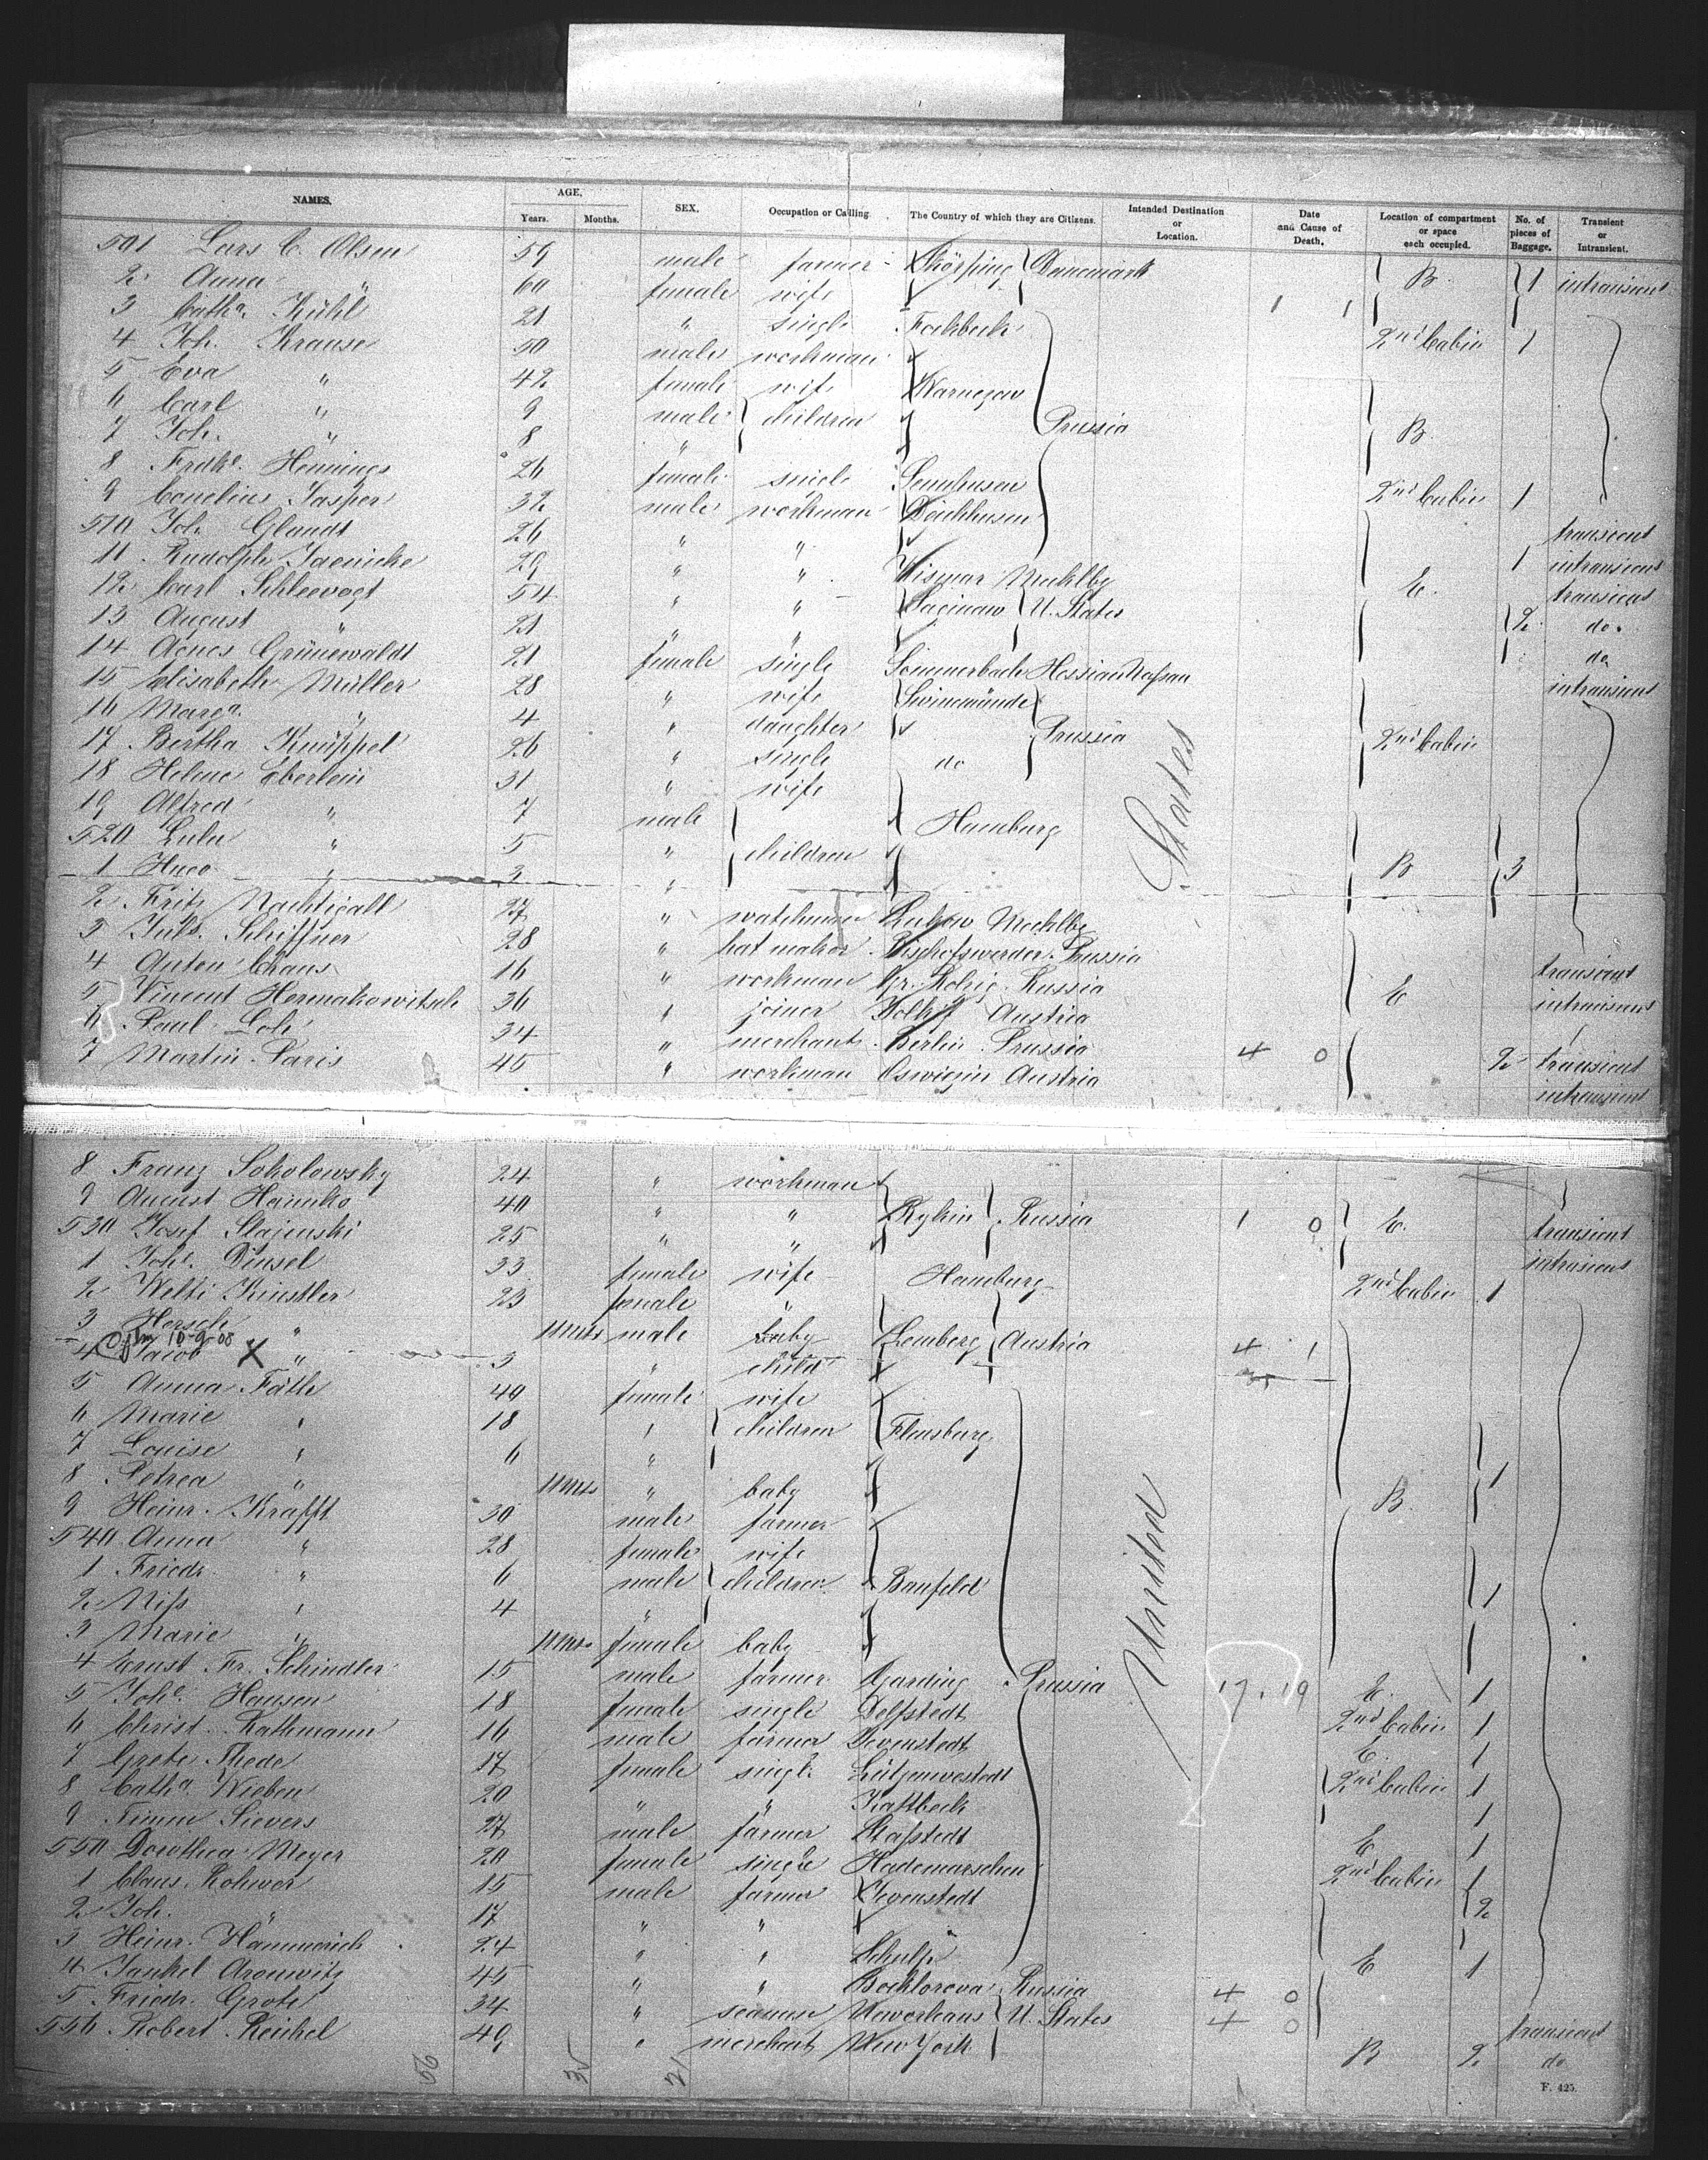 NAMES. AGE. Years. Months. SEX. Occupation or Calling. The Country of which they are Citizens. Intended Destination or Location. Date and Cause of Death. Location of compartment or space each occupied. No. of pieces of Baggage. Transient or Intransient.
501 Lars C. Olsen 59 male farmer Skörping Danemark B. 1 intransient
2 Anna " 60 female wife
3 Catha. Kühl 21 " single Fockbeck 2nd Cabin 1
4 Joh. Krause 50 male workman
5 Eva " 42 female wife Warnegow
6 Carl " 9 male children Prussia B.
7 Joh. " 8 "
8 Fredke. Hennings 26 female single 2nd Cabin 1
9 Cornelius Jasper 32 male workman
510 Joh. Glandt 26 " " transient
11 Rudolph Jaenicke 29 " " Wismar Mecklbg 1 intransient
12 Carl Schleevogt 54 " " Saginaw U. States E. transient
13 August " 21 " " 2 do.
14 Agnes Grünewaldt 21 female single Hessian Nassau do
15 Elisabeth Müller 28 " wife Swinemünde intransient
16 Marga. " 4 " daughter Prussia
17 Bertha Knüppel 26 " single do 2nd Cabin
18 Helene Eberlein 31 " wife
19 Alfred " 7 male Hamburg
520 Lulu " 5 " children
1 Hugo " 3 " B 3
2 Fritz Nachtigall 27 " watchman Mecklbg
3 Juls. Schiffner 28 " hat maker Bischofswerder Prussia
4 Anton 16 " workman Russia transient
5 Vincent Hermakowitsch 36 " joiner Austria E intransient
6 Paul Loh 34 " merchant Berlin Prussia
7 Martin Paris 45 " workman Oswiezin Austria 4 0 2 transient
intransient
8 Franz Sokolowsky 24 " workman
9 August 40 " " Rypin Russia 1 0 E.
530 Josef 25 " " transient
1 Johe. Dinsel 33 female wife Hamburg intransient
2 Kinstler 23 female " 2nd Cabin 1
3 Hersch " 11 mts male baby Lemberg Austria 4 1
10-9-08
4 Jacob X " 3 " child
5 Anna Fäth 40 female wife
6 Marie " 18 " children Flensburg
7 Louise " 6 "
8 Petrea " 11 mts " baby 1
9 Heinr. Krafft 30 male farmer B.
540 Anna " 28 female wife
1 Friedr. " 6 male children
2 Niss " 4 " 1
3 Marie " 11 mts female baby
4 Ernst Fr. Schindler 15 male farmer Garding Prussia 17.19 E. 1
5 Johe. Hansen 18 female single 2nd Cabin 1
6 Christ. Rathmann 16 male farmer Jevenstedt E. 1
7 Grete Thede 17 female single Lütjenwestedt 2nd Cabin 1
8 Catha. Wieben 20 " " 1
9 Timm Sievers 27 male farmer Stafstedt E 1
550 Dorothea Meyer 20 female single Hademarschen 2nd Cabin 1
1 Claus Rohwer 15 male farmer Jevenstedt 2
2 Joh. " 17 " "
3 Heinr. Hämmerich 24 " " E 1
4 Jankel Aronwitz 45 " " Russia 4 0
5 Friedr. Grote 34 " seaman Neworleans U. States 4 0
556 Robert Reichel 49 " merchant New York B 2 transient
do
United States
56 35 21
F. 425.